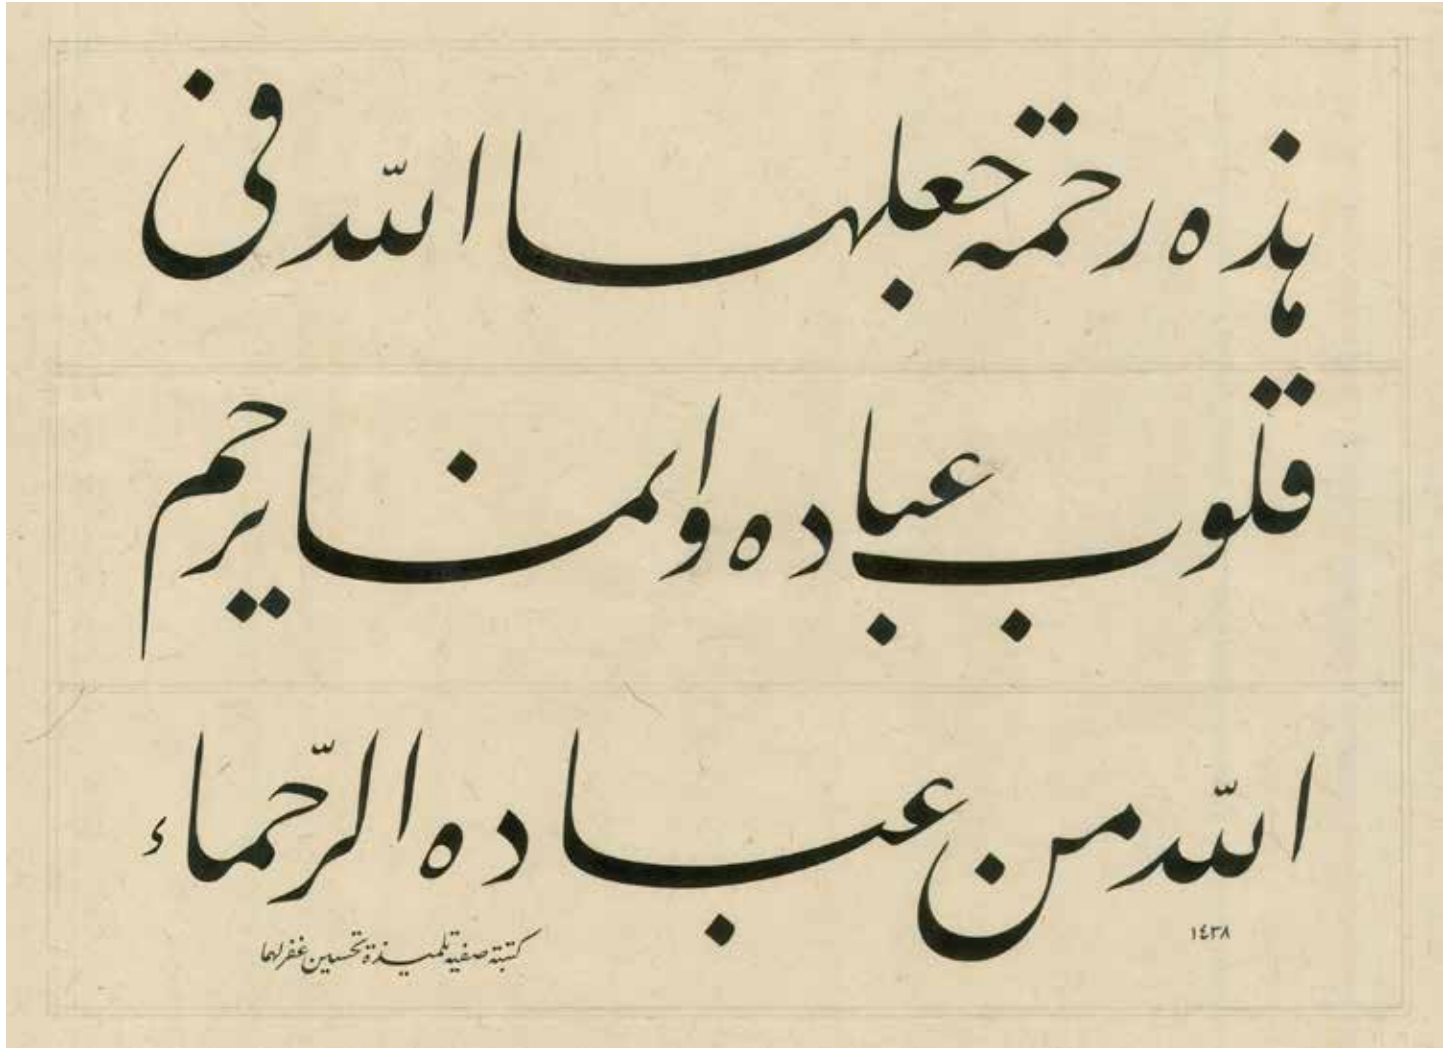 هذه رحمة جعلها الله فى
قلوب عباده وانما يرحم
الله من عباده الرّحماء
١٤٣٨
كتبته صفيه تلميذة تحسين غفر لهما